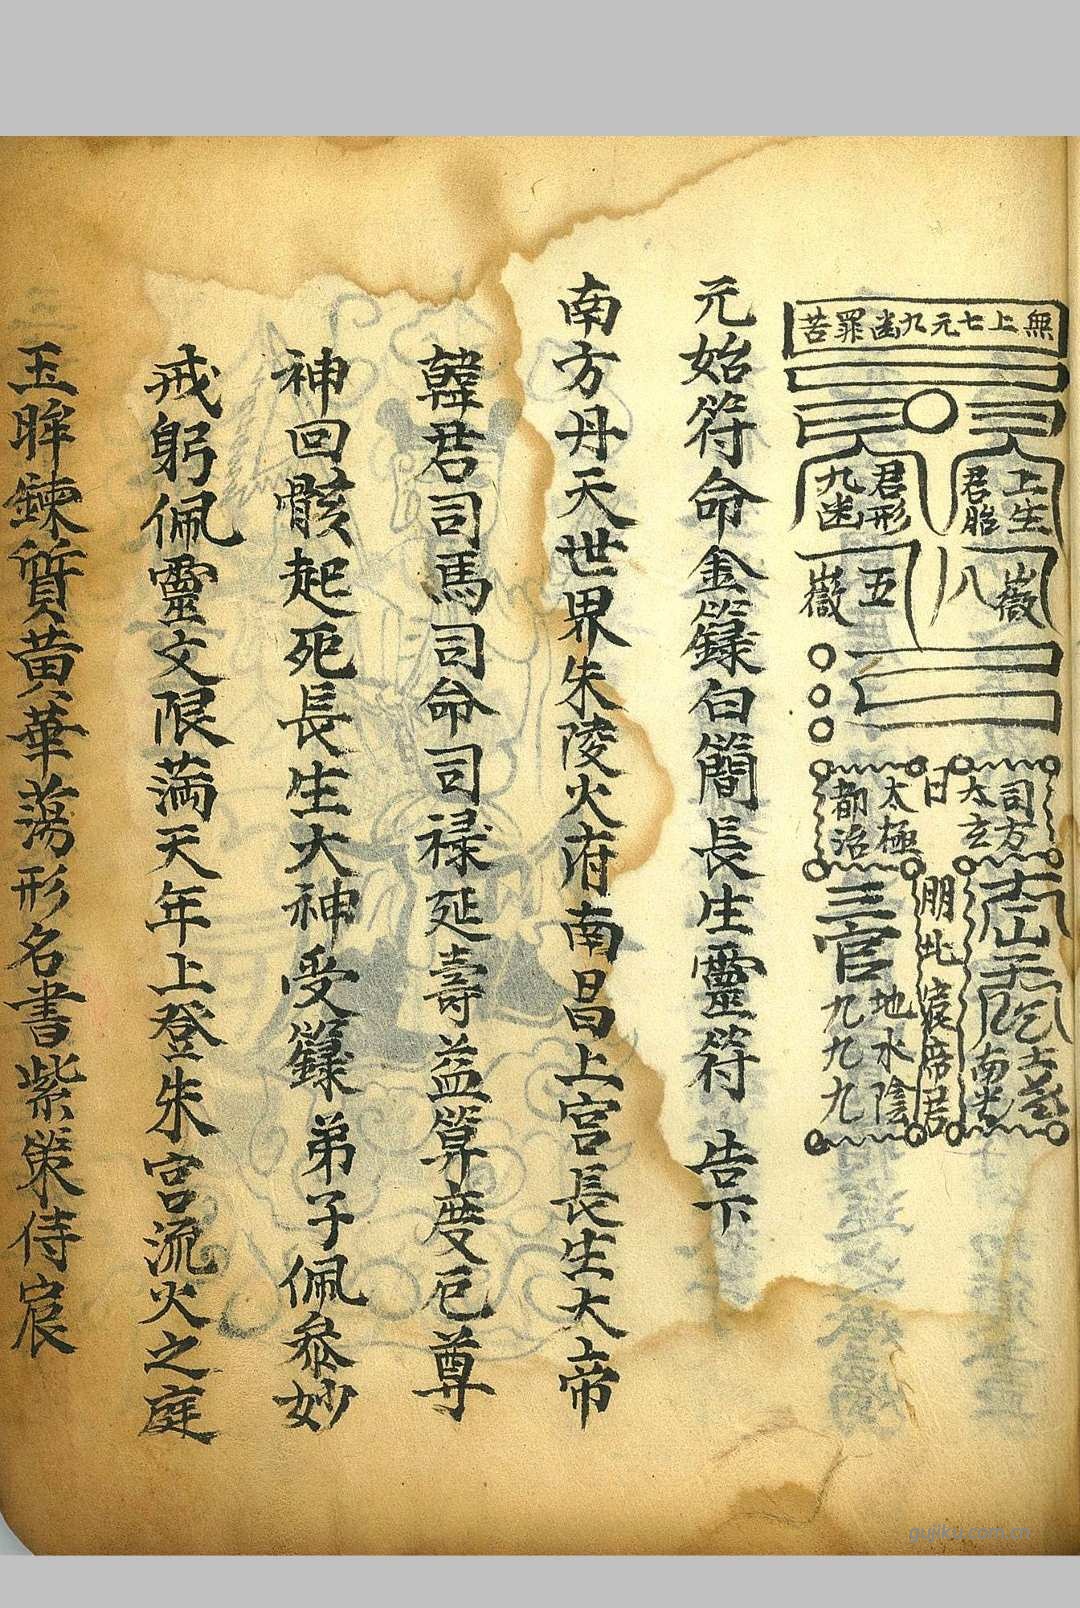 無上七元九幽罪苦
上生
君胎
君形
九幽
八
嶽
五
嶽
司方
太玄
日
太極
都治
三官
地水陰
九九九
南
帝君
元始符命金籙白簡長生靈符 告下
南方丹天世界朱陵火府南昌上宫長生大上帝
韓君司馬司命司禄延壽益算度厄尊
神回骸起死長生大神受籙 弟子佩叅妙
戒躬佩靈文限满天年上登朱宫流火之庭
玉眸鍊質黄華蕩形名書紫策侍宸
gujiku.com.cn